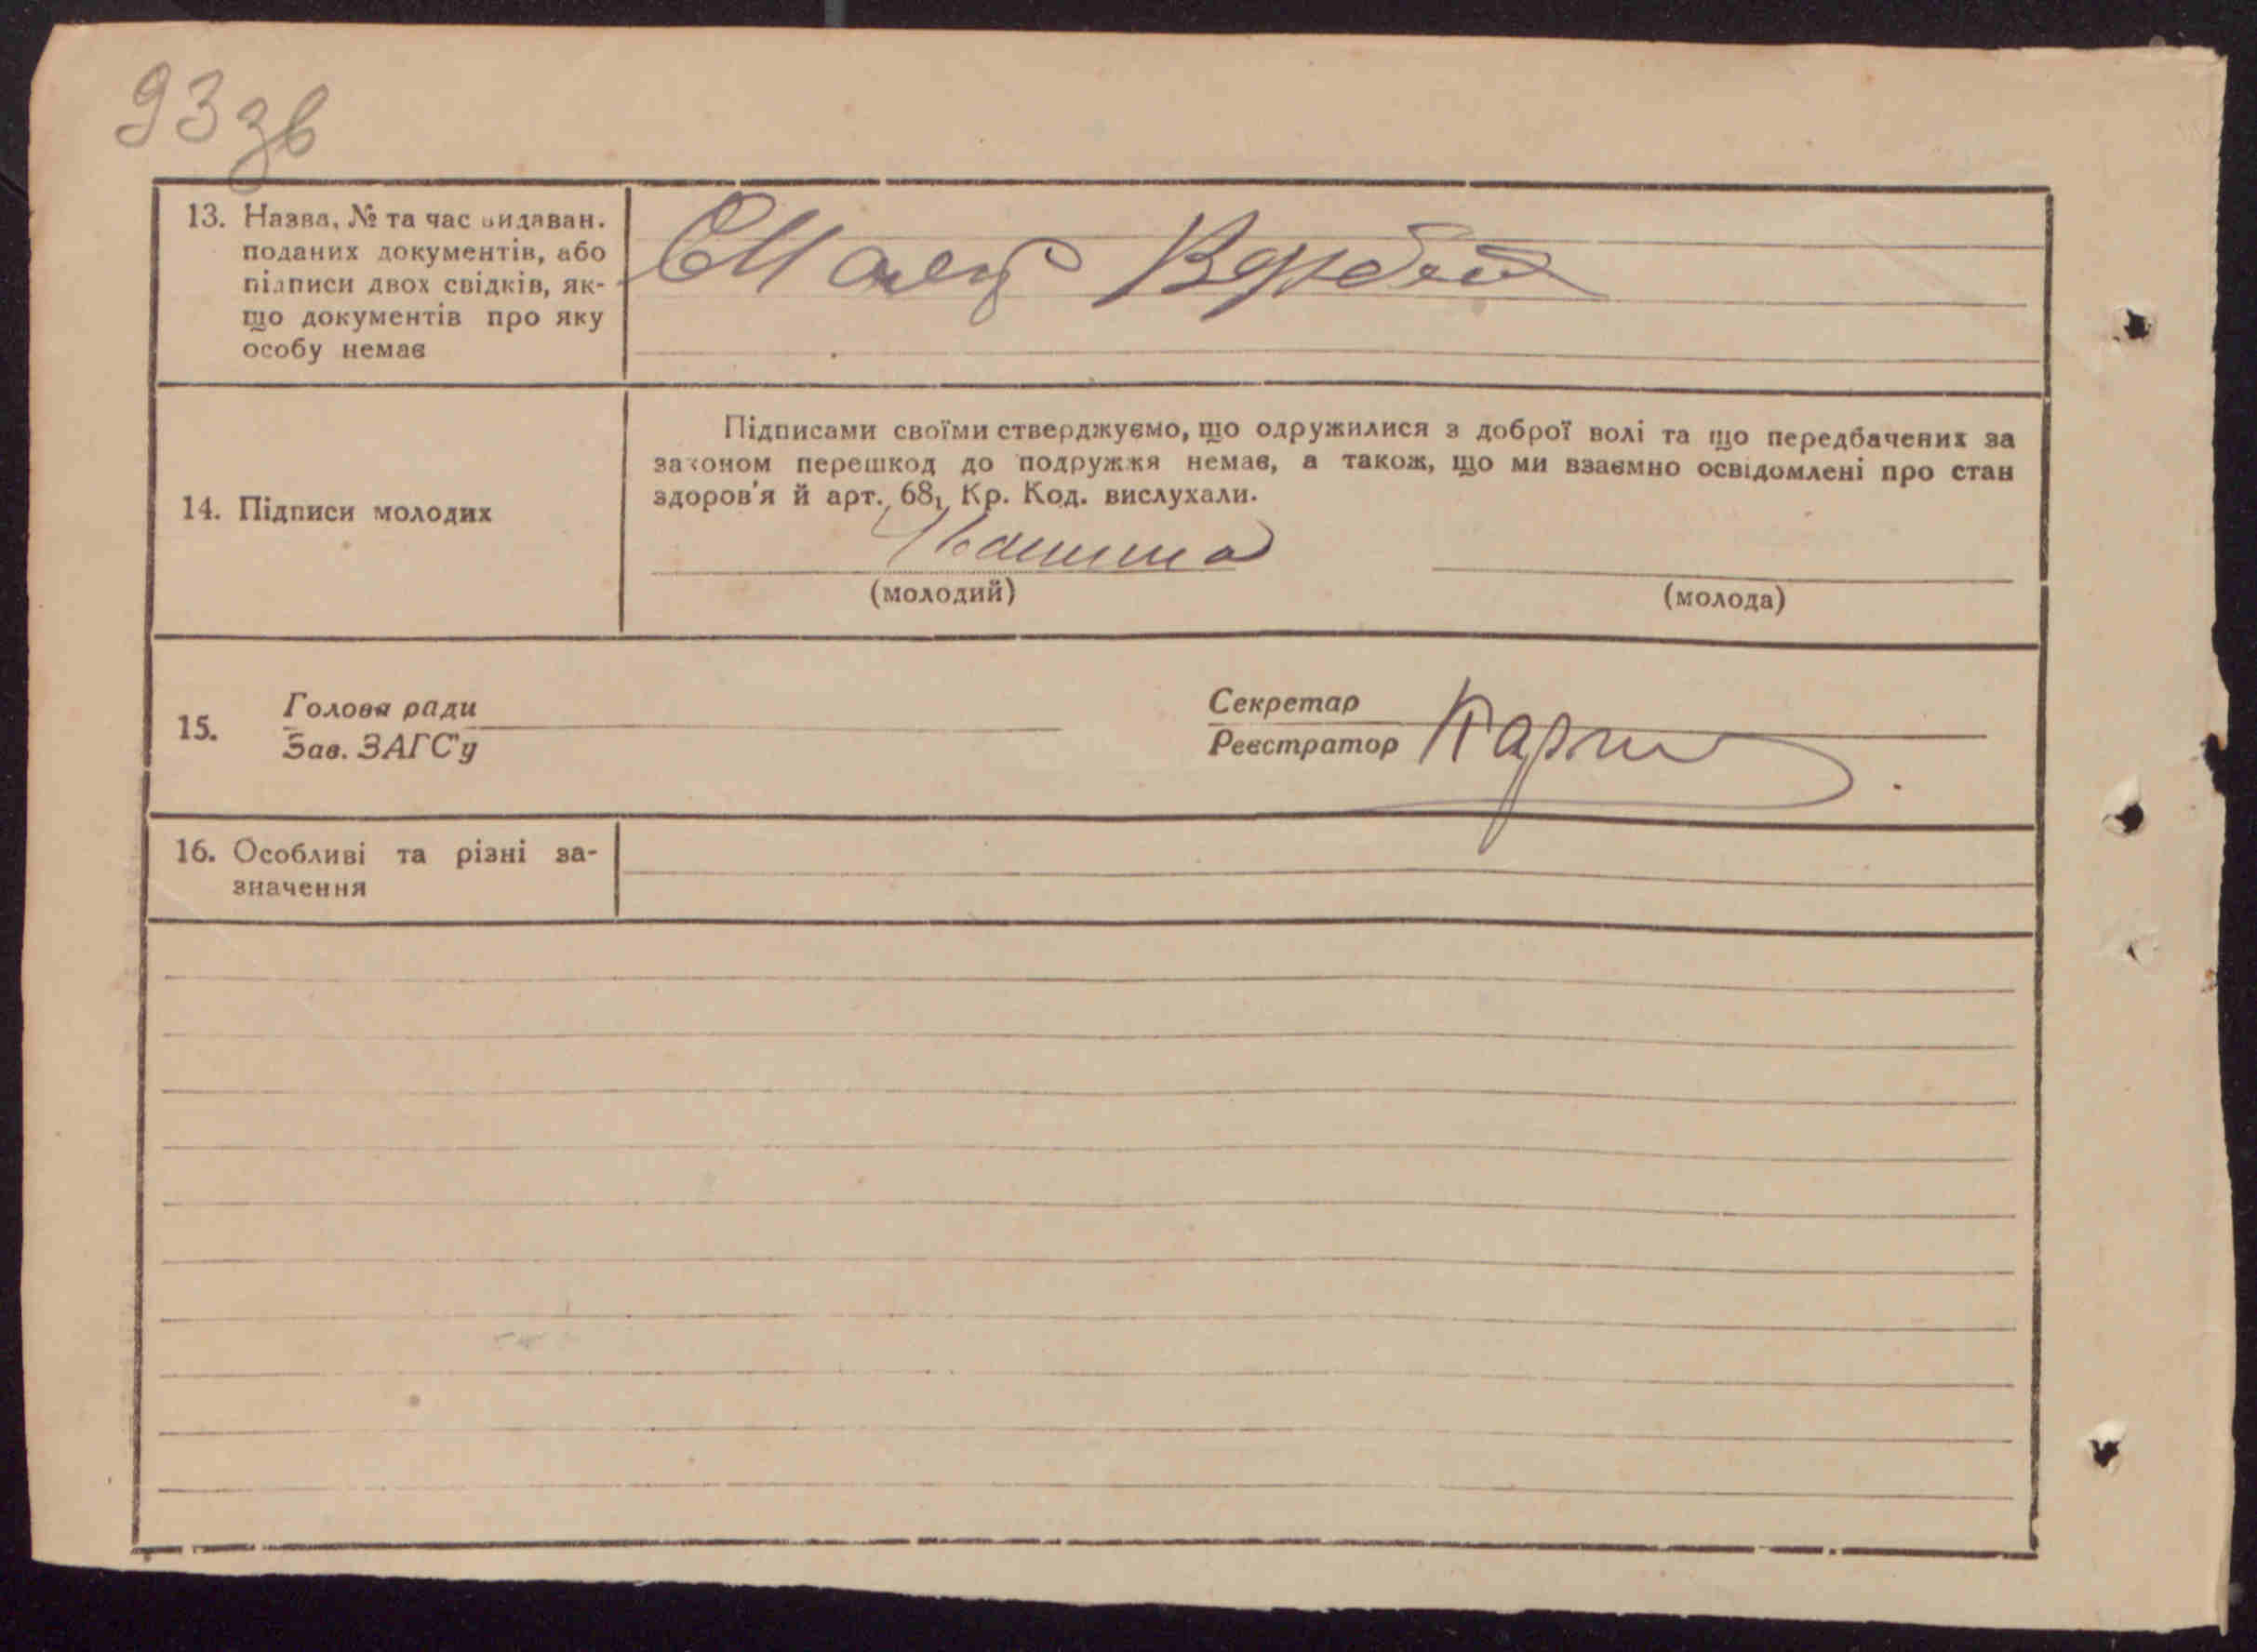 93 зв
13. Назва, № та час видаван.
поданих документів, або
підписи двох свідків, як-
що документів про яку
особу немає
14. Підписи молодих
Підписами своїми стверджуємо, що одружилися з доброї волі та що передбачених за
законом перешкод до подружжя немає, а також, що ми взаємно освідомлені про стан
здоров'я й арт. 68₁ Кр. Код. вислухали.
(молодий)
(молода)
15.
Голова ради
Зав. ЗАГС'у
Секретар
Реєстратор
16. Особливі та різні за-
значення